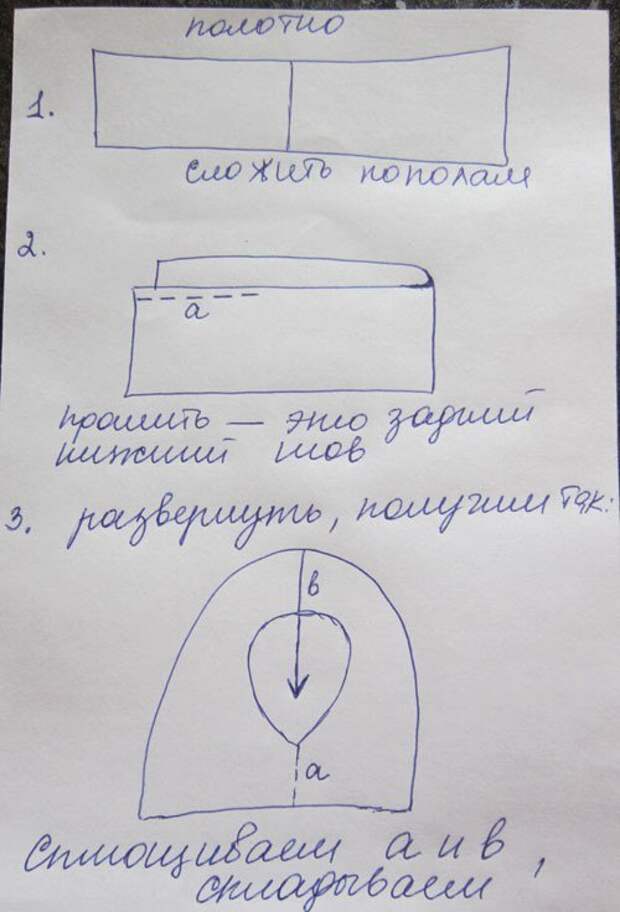 полотно
1.
сложить пополам
2.
а
прошить — это задний
нижний шов
3. развернуть, получим так:
в
а
Сплющиваем а и в,
складываем